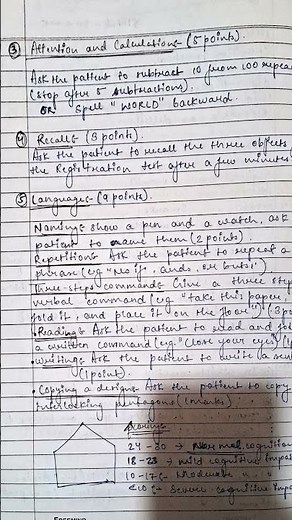 ③ Attention and Calculation:- (5 points).
Ask the patient to subtract 10 from 100 repea
(stop after 5 subtractions).
OR Spell "WORLD" backward.
④ Recall:- (3 points).
Ask the patient to recall the three objects
the Registration test after a few minutes
⑤ Language:- (9 points).
Naming:- show a pen and a watch, ask
patient to name them (2 points)
Repetition:- Ask the patient to repeat a
phrase (eg "No if, ands, or buts!")
Three-step command:- Give a three step
verbal command (eg "take this paper,
fold it, and place it on the floor") (3 po
• Reading:- Ask the patient to read and
a written command (eg. "Close your eyes"
• Writing:- Ask the patient to write (a sen
(1 point).
• Copying a design:- Ask the patient to copy
interlocking pentagons (1 mark).
Scoring
24 - 30 → Normal cognition
18 - 23 → mild cognitive impa
10 - 17 → Moderate " "
<10 → Severe cognitive imp